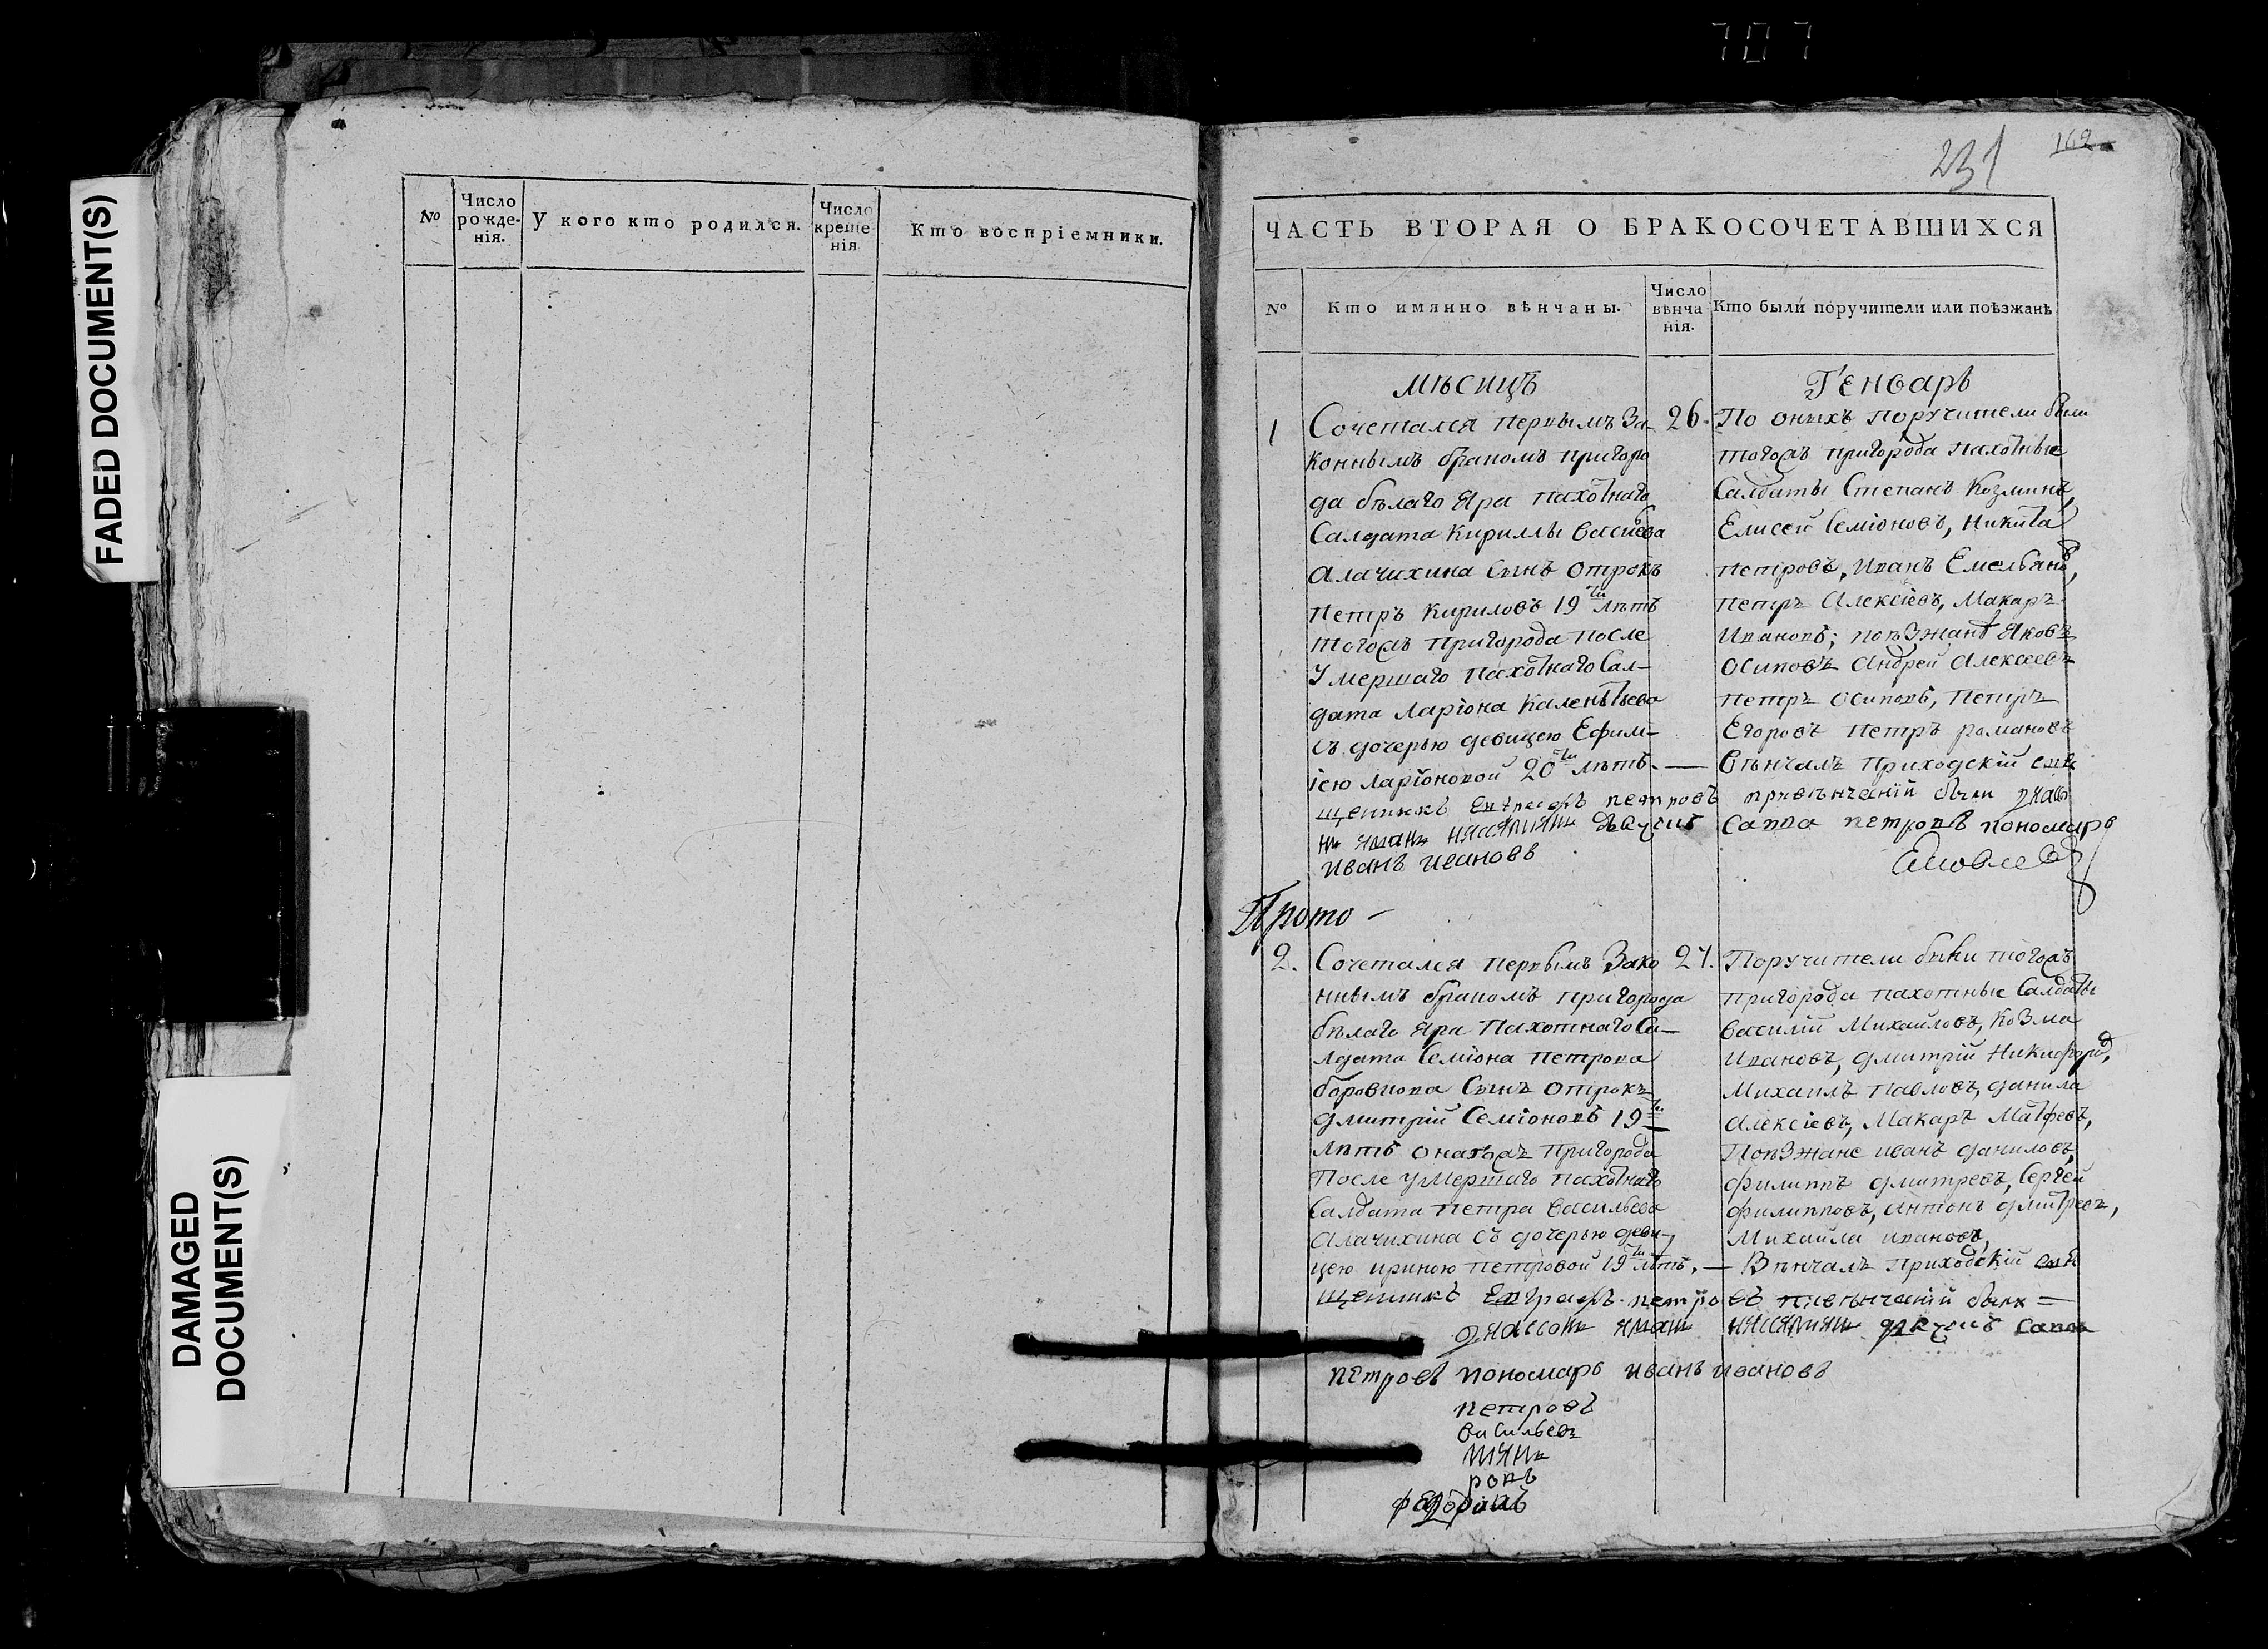 707
FADED DOCUMENT(S)
DAMAGED
DOCUMENT(S)
№
Число рожденія.
У кого кто родился.
Число крещенія
Кто воспріемники.
231
162
ЧАСТЬ ВТОРАЯ О БРАКОСОЧЕТАВШИХСЯ
№
Кто имянно вѣнчаны.
Число вѣнчанія.
Кто были поручители или поѣзжанѣ
мѣсицъ
Генварь
1
Сочетался первымъ За
коннымъ бракомъ пригоро
да бѣлаго Яра пахотнаго
Салдата Кириллы Васиева
Алачихина Сынъ отрокъ
Петръ Кириловъ 19ти лѣтъ
тогожъ пригорода после
Умершаго пахотнаго Сал-
дата Ларіона Калентьева
съ дочерью девицею Ефим-
іею Ларіоновой 20ти лѣтъ.
26.
По оныхъ поручители были
тогожъ пригорода пахотные
Салдаты Степанъ Козминъ,
Елисей Семіоновъ, Никита
петровъ, Иванъ Емельяновъ,
петръ Алексіевъ, Макаръ
Ивановъ; поѣзжанѣ Яковъ
Осиповъ Андрей Алексеевъ
петръ Осиповъ, Петръ
Егоровъ петръ романовъ
Вѣнчалъ приходскій свя
щенникъ Евграфъ петровъ привѣнчаніи были
Савва петровъ пономарь
иванъ ивановъ
Прото -
2.
Сочетался первымъ Зако
ннымъ бракомъ пригорода
бѣлаго Яра Пахотнаго Са-
лдата Семіона петрова
боровкова Сынъ отрокъ
дмитрій Семіоновъ 19ти
лѣтъ онагожъ пригорода
После умершаго пахотнаго
Салдата петра Васильева
Алачихина съ дочерью деви-
цею ириною петровой 19ти лѣтъ.
27.
Поручители были тогожъ
пригорода пахотные Салдаты
Василій Михайловъ, Козма
Ивановъ, дмитрій Никифоровъ,
Михаилъ Павловъ, данила
Алексіевъ, Макаръ Матфевъ,
Поѣзжане иванъ даниловъ,
филиппъ дмитревъ, Сергей
филипповъ, Антонъ дмитревъ,
Михайла ивановъ,
Вѣнчалъ приходскій свя
щенникъ Евграфъ петровъ привѣнчаніи были
Савва
петровъ пономарь иванъ ивановъ
петровъ
васильевъ